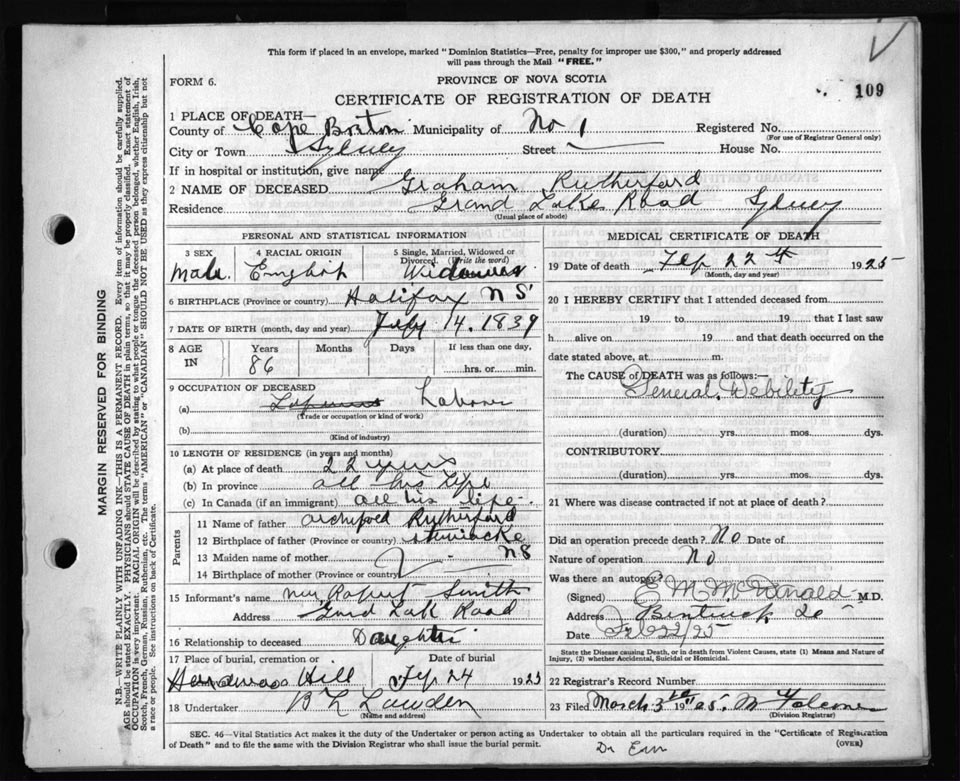 This form if placed in an envelope, marked "Dominion Statistics—Free, penalty for improper use $300," and properly addressed
will pass through the Mail "FREE."
FORM 6.
PROVINCE OF NOVA SCOTIA
109
CERTIFICATE OF REGISTRATION OF DEATH
1 PLACE OF DEATH—
County of Cape Breton Municipality of No 1 Registered No.
(For use of Registrar General only)
City or Town Sydney Street House No.
If in hospital or institution, give name
2 NAME OF DECEASED Graham Rutherford
Residence Grand Lake Road Sydney
(Usual place of abode)
PERSONAL AND STATISTICAL INFORMATION
3 SEX 4 RACIAL ORIGIN 5 Single, Married, Widowed or
Divorced. (Write the word)
Male English Widower
6 BIRTHPLACE (Province or country) Halifax N S
7 DATE OF BIRTH (month, day and year) July 14. 1839
8 AGE IN Years Months Days If less than one day,
86 hrs. or min.
9 OCCUPATION OF DECEASED
(a) Labourer
(Trade or occupation or kind of work)
(b)
(Kind of industry)
10 LENGTH OF RESIDENCE (in years and months)
(a) At place of death 22 years
(b) In province all his life
(c) In Canada (if an immigrant) all his life
Parents
11 Name of father Rutherford
12 Birthplace of father (Province or country) Stewiacke
NS
13 Maiden name of mother
14 Birthplace of mother (Province or country)
15 Informant's name Mrs Robert Smith
Address Grand Lake Road
16 Relationship to deceased Daughter
17 Place of burial, cremation or Date of burial
Hill Feb 24 1925
18 Undertaker Lowden
(Name and address)
MEDICAL CERTIFICATE OF DEATH
19 Date of death Feb 22 1925
(Month, day and year)
20 I HEREBY CERTIFY that I attended deceased from
19 to 19 that I last saw
h alive on 19 and that death occurred on the
date stated above, at m.
The CAUSE of DEATH was as follows:—
General Debility
(duration) yrs. mos. dys.
CONTRIBUTORY
(duration) yrs. mos. dys.
21 Where was disease contracted if not at place of death?
Did an operation precede death? No Date of
Nature of operation No
Was there an autopsy?
(Signed) E M McDonald M.D.
Address
Date Feb 22/25
State the Disease causing Death, or in death from Violent Causes, state (1) Means and Nature of
Injury, (2) whether Accidental, Suicidal or Homicidal.
22 Registrar's Record Number
23 Filed March 3 19
(Division Registrar)
SEC. 46—Vital Statistics Act makes it the duty of the Undertaker or person acting as Undertaker to obtain all the particulars required in the "Certificate of Registration
of Death" and to file the same with the Division Registrar who shall issue the burial permit.
(OVER)
MARGIN RESERVED FOR BINDING
N.B.—WRITE PLAINLY, WITH UNFADING INK—THIS IS A PERMANENT RECORD. Every item of information should be carefully supplied.
AGE should be stated EXACTLY. PHYSICIANS should STATE CAUSE OF DEATH in plain terms, so that it may be properly classified. Exact statement of
OCCUPATION is very important. RACIAL ORIGIN will be described by stating to what people or tongue the deceased person belonged, whether English, Irish,
Scotch, French, German, Russian, Ruthenian, etc. The terms "AMERICAN" or "CANADIAN" SHOULD NOT BE USED as they express citizenship but not
a race or people. See instructions on back of Certificate.